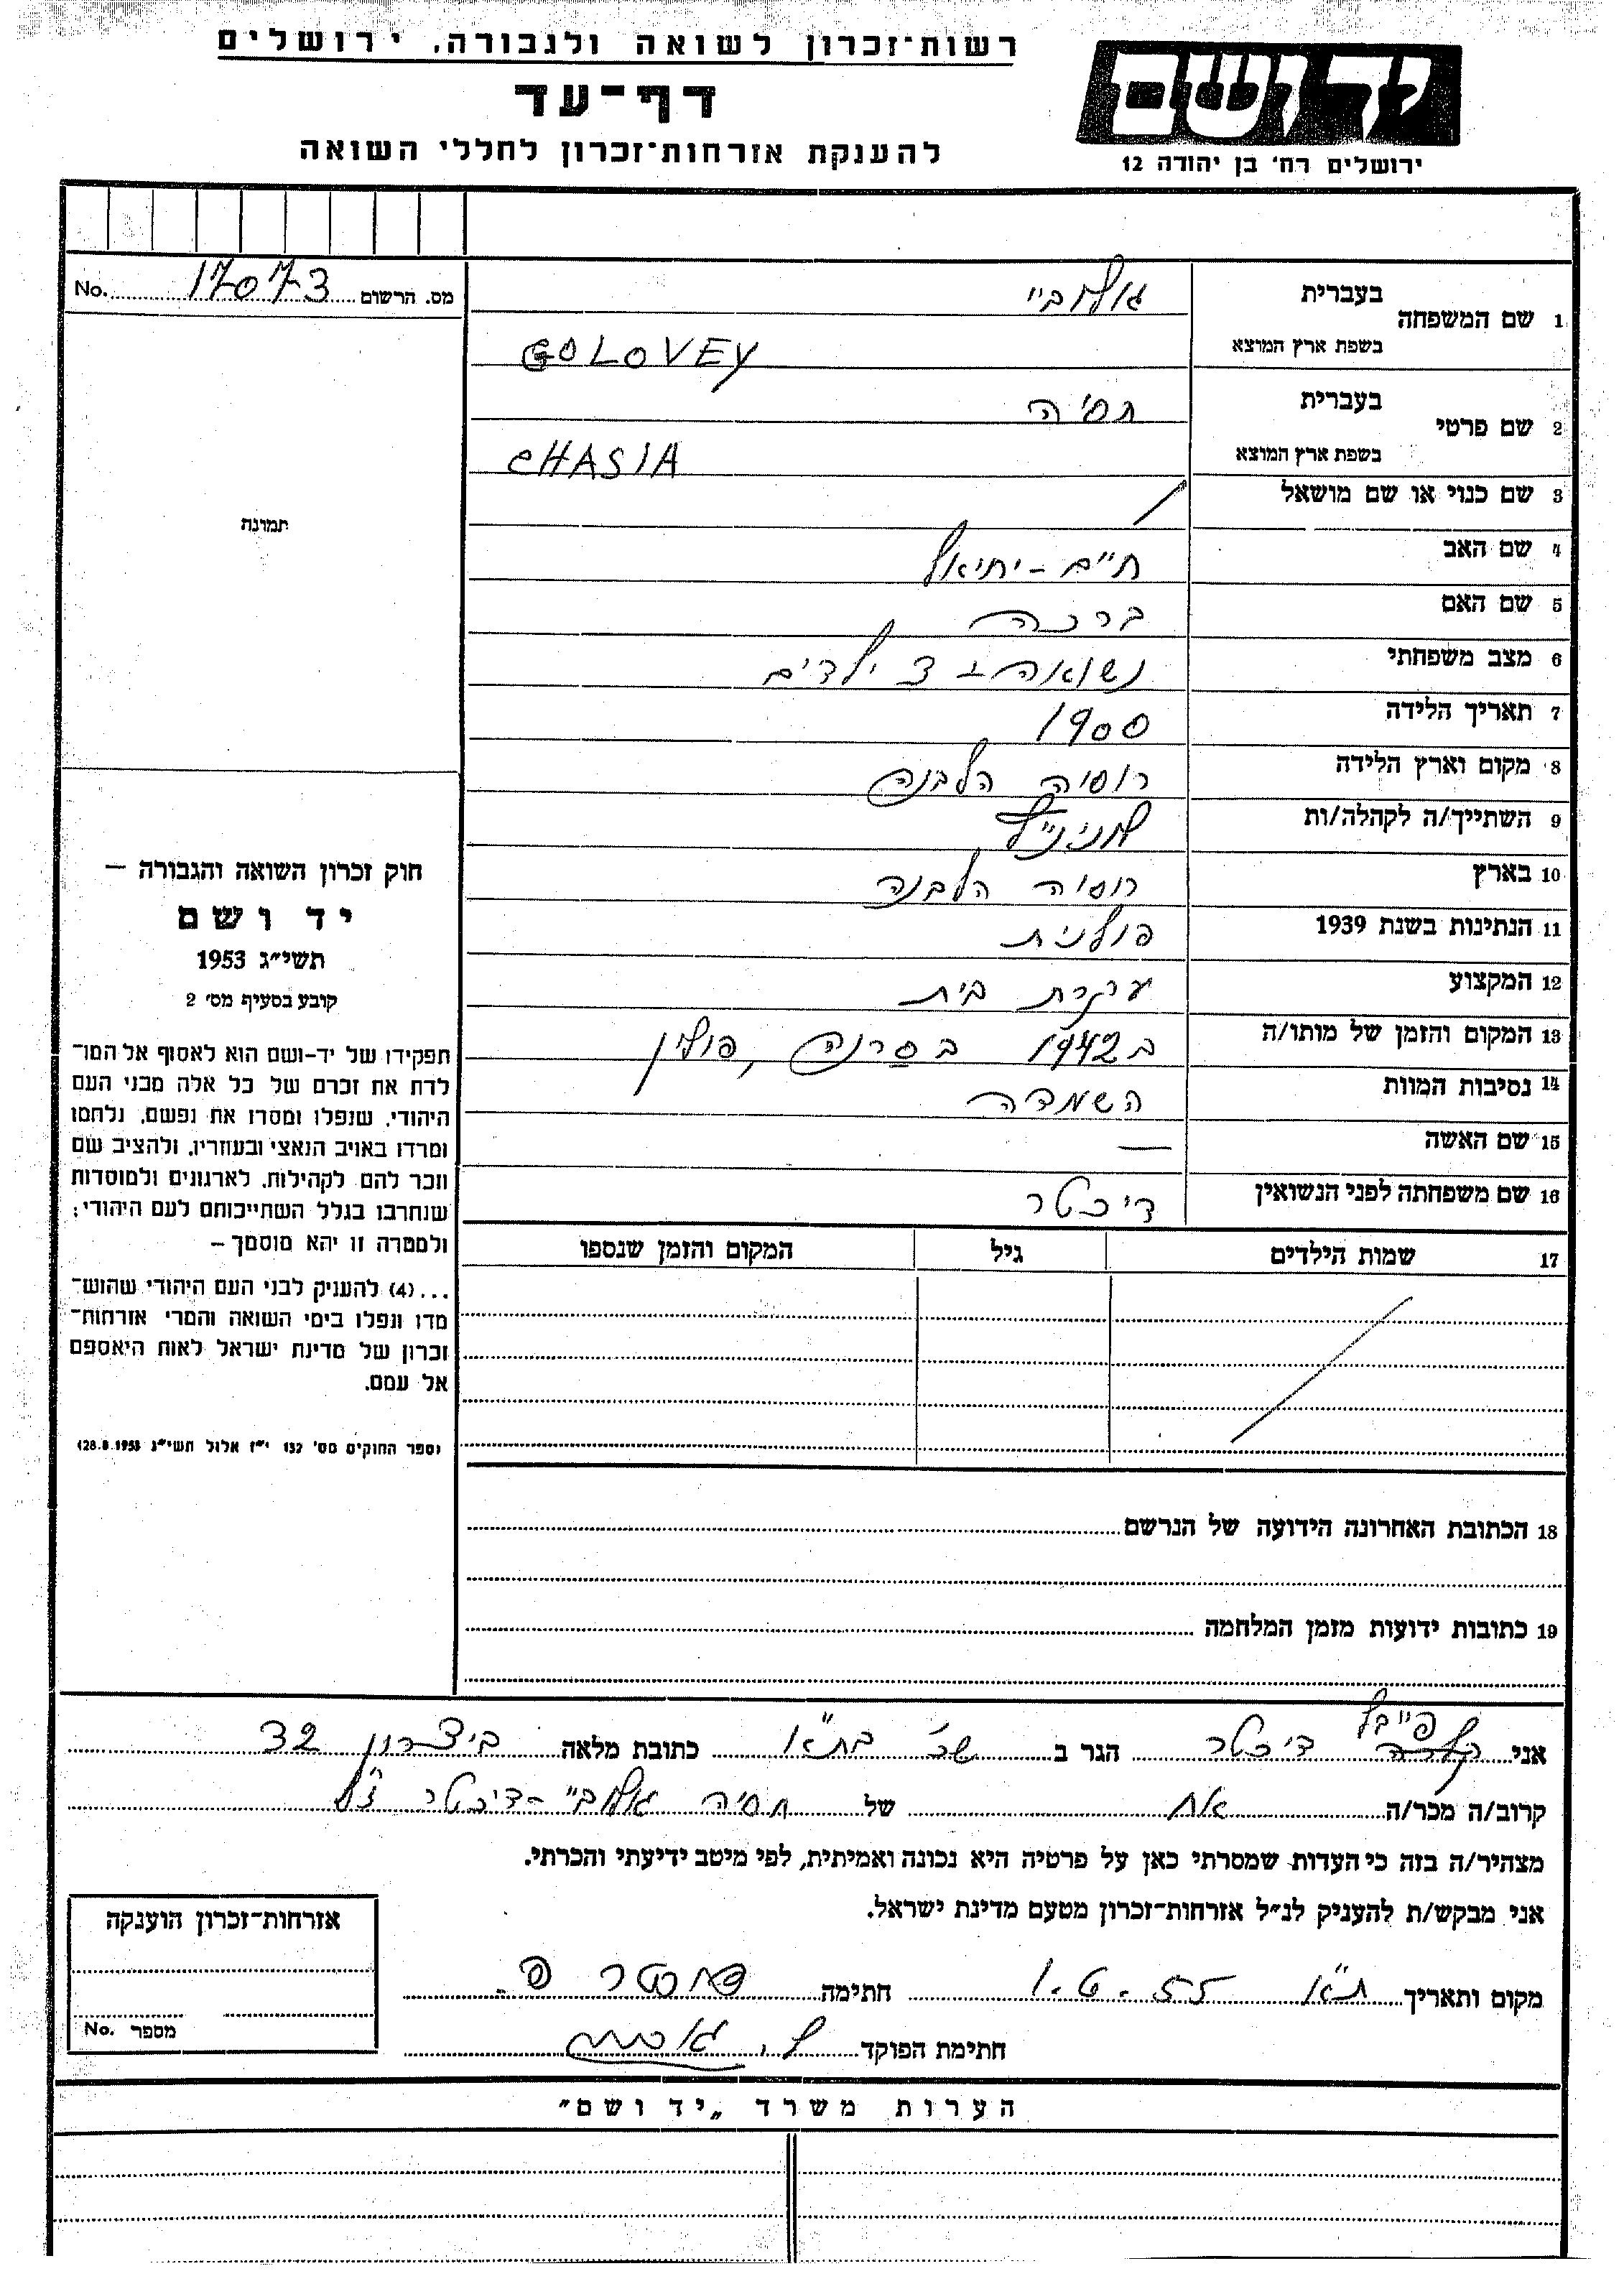 רשות־זכרון לשואה ולגבורה, ירושלים
דף־עד
להענקת אזרחות־זכרון לחללי השואה
יד ושם
ירושלים רח׳ בן יהודה 12
מס. הרשום 17073 No.
1 שם המשפחה בעברית גולובי״
בשפת ארץ המוצא GOLOVEY
2 שם פרטי בעברית חסיה
בשפת ארץ המוצא CHASIA
3 שם כנוי או שם מושאל /
4 שם האב חיים - יחיאל
5 שם האם ברכה
6 מצב משפחתי נשואה - 3 ילדים
7 תאריך הלידה 1900
8 מקום וארץ הלידה רוסיה הלבנה
9 השתייך/ה לקהלה/ות
10 בארץ רוסיה הלבנה
11 הנתינות בשנת 1939 פולנית
12 המקצוע עקרת בית
13 המקום והזמן של מותו/ה ב 1942 בסרנה, פולין
14 נסיבות המוות השמדה
15 שם האשה —
16 שם משפחתה לפני הנשואין דיכטר
17 שמות הילדים גיל המקום והזמן שנספו
18 הכתובת האחרונה הידועה של הנרשם
19 כתובות ידועות מזמן המלחמה
תמונה
חוק זכרון השואה והגבורה —
יד ושם
תשי״ג 1953
קובע בסעיף מס׳ 2
תפקידו של יד-ושם הוא לאסוף אל המו־
לדת את זכרם של כל אלה מבני העם
היהודי, שנפלו ומסרו את נפשם, נלחמו
ומרדו באויב הנאצי ובעוזריו, ולהציב שם
וזכר להם לקהילות, לארגונים ולמוסדות
שנחרבו בגלל השתייכותם לעם היהודי;
ולמטרה זו יהא מוסמך —
...(4) להעניק לבני העם היהודי שהוש־
מדו ונפלו בימי השואה והמרי אזרחות־
זכרון של מדינת ישראל לאות היאספם
אל עמם.
(ספר החוקים מס׳ 132 י״ז אלול תשי״ג 28.8.1953)
אני פייבל דיכטר הגר ב שכ׳ בת״א כתובת מלאה ביצרון 32
קרוב/ה מכר/ה אח של חסיה גולובי״ - דיכטר ז״ל
מצהיר/ה בזה כי העדות שמסרתי כאן על פרטיה היא נכונה ואמיתית, לפי מיטב ידיעתי והכרתי.
אני מבקש/ת להעניק לנ״ל אזרחות־זכרון מטעם מדינת ישראל.
מקום ותאריך ת״א 1.6.55 חתימה
חתימת הפוקד
אזרחות־זכרון הוענקה
מספר No.
הערות משרד „יד ושם״